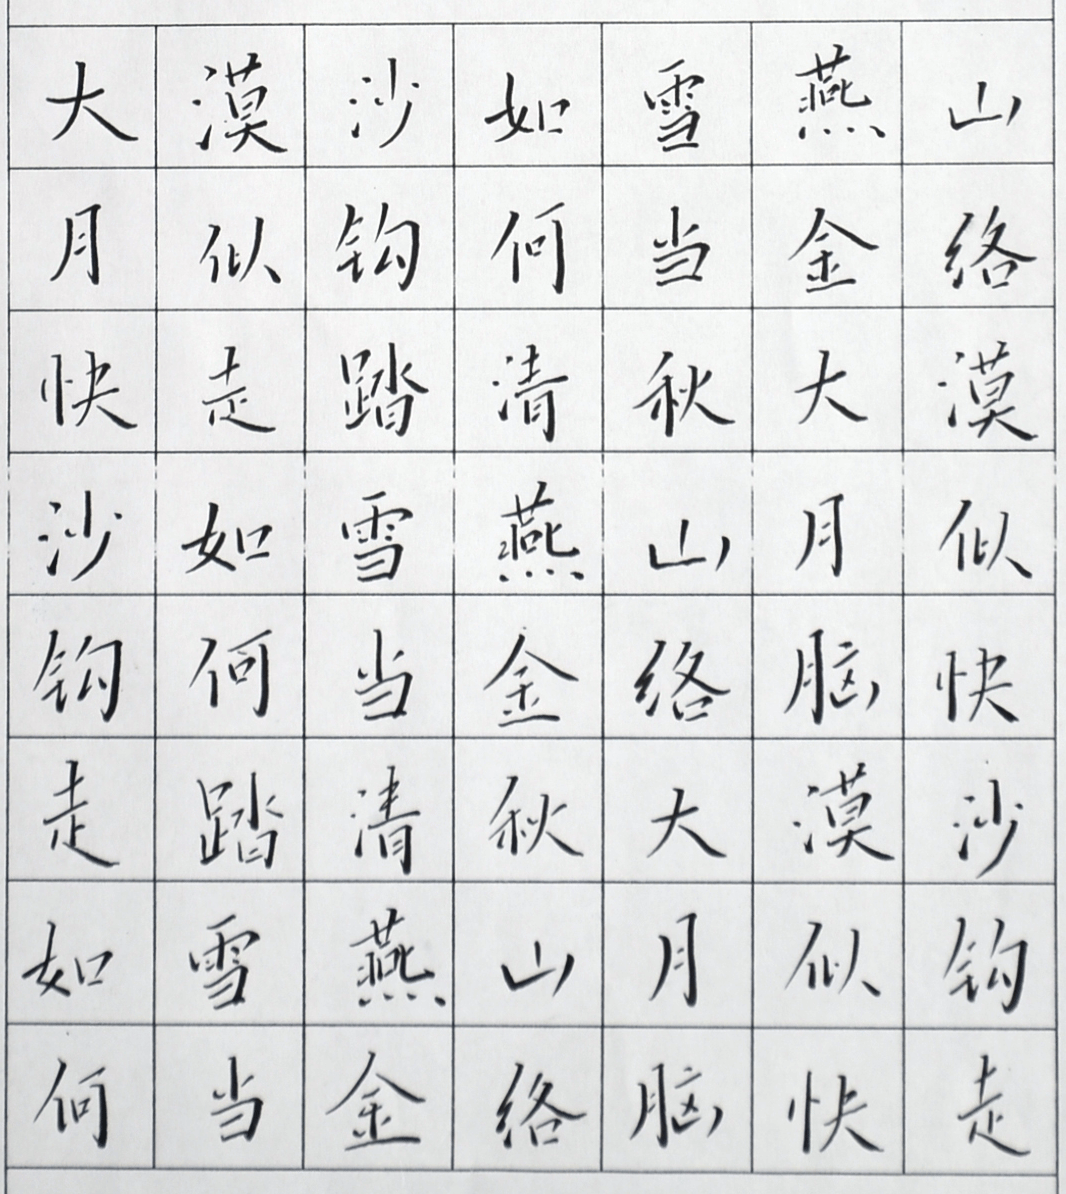 大漠沙如雪燕山
月似钩何当金络
快走踏清秋大漠
沙如雪燕山月似
钩何当金络脑快
走踏清秋大漠沙
如雪燕山月似钩
何当金络脑快走